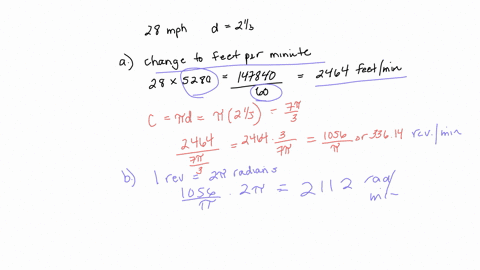 28 mph d = 2 1/3
a.) change to feet per miniute
28 × 5280 = 147840/60 = 2464 feet/min
C = πd = π(2 1/3) = 7π/3
2464/(7π/3) = 2464 · 3/7π = 1056/π or 336.14 rev./min
b) 1 rev = 2π radians
1056/π · 2π = 2112 rad/min